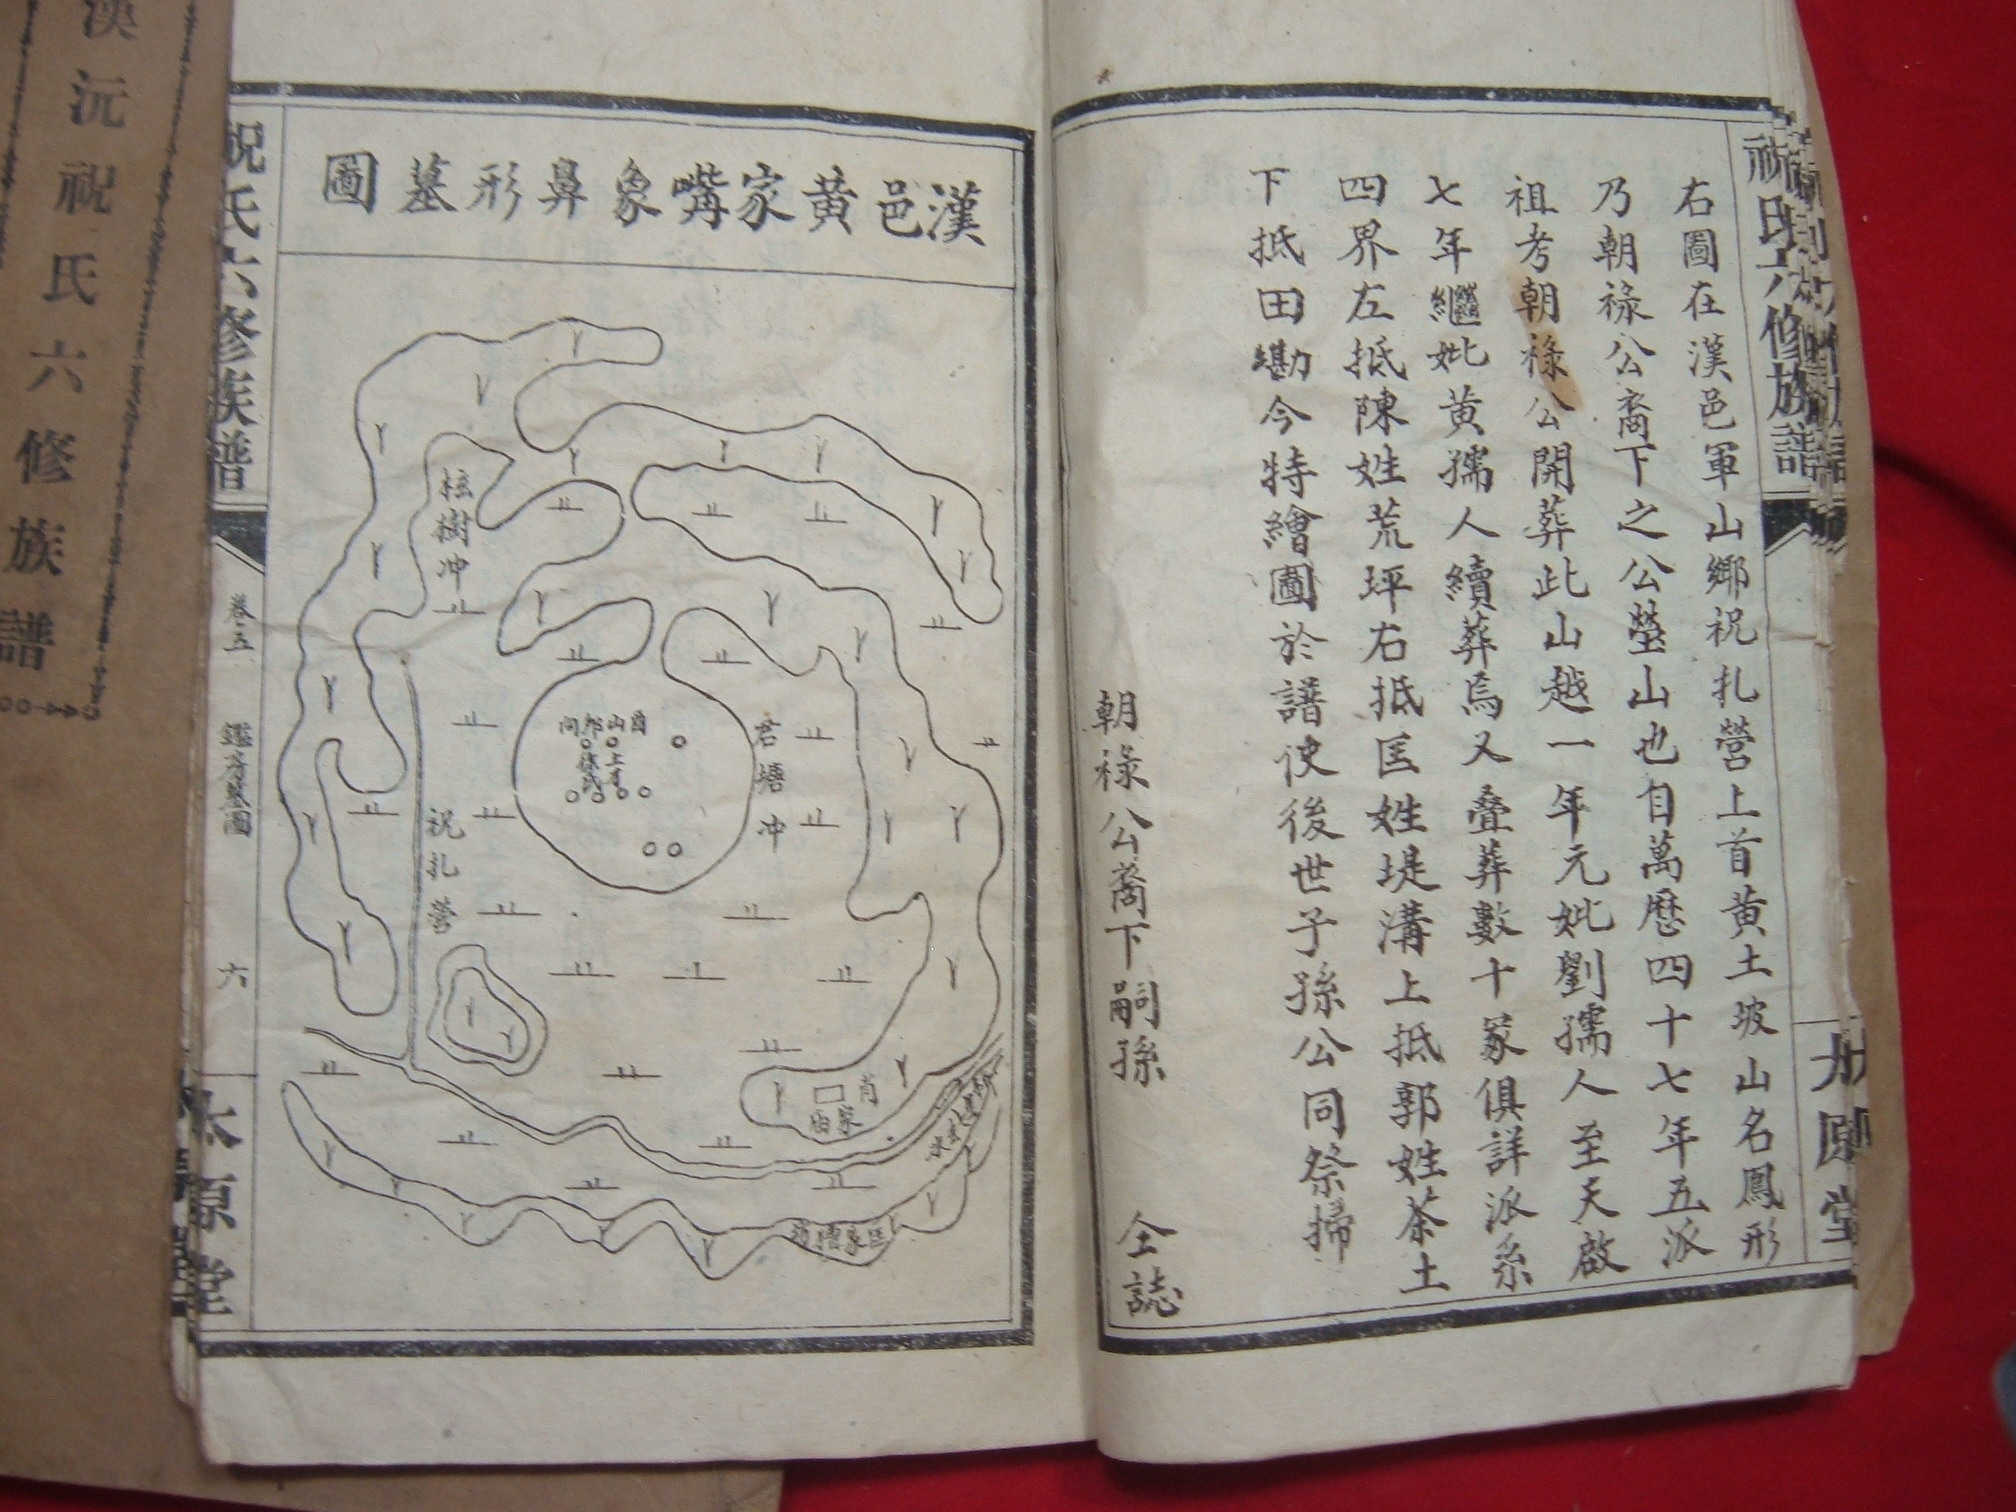 祝氏六修族譜
右圖在漢邑軍山鄉祝扎營上首黃土坡山名鳳形
乃朝祿公裔下之公塋山也自萬厯四十七年五派
祖考朝祿公開葬此山越一年元妣劉孺人至天啟
七年繼妣黃孺人續葬焉又叠葬數十冢俱詳派系
四界左抵陳姓荒坪右抵匡姓堤溝上抵郭姓茶土
下抵田墈今特繪圖於譜使後世子孫公同祭掃
朝祿公裔下嗣孫 仝誌
漢邑黃家嘴象鼻形墓圖
樹冲
君塘冲
祝扎營
酉山卯向
上首
徐氏
肖家
祝氏六修族譜
卷五
六
太原堂
漢沅祝氏六修族譜